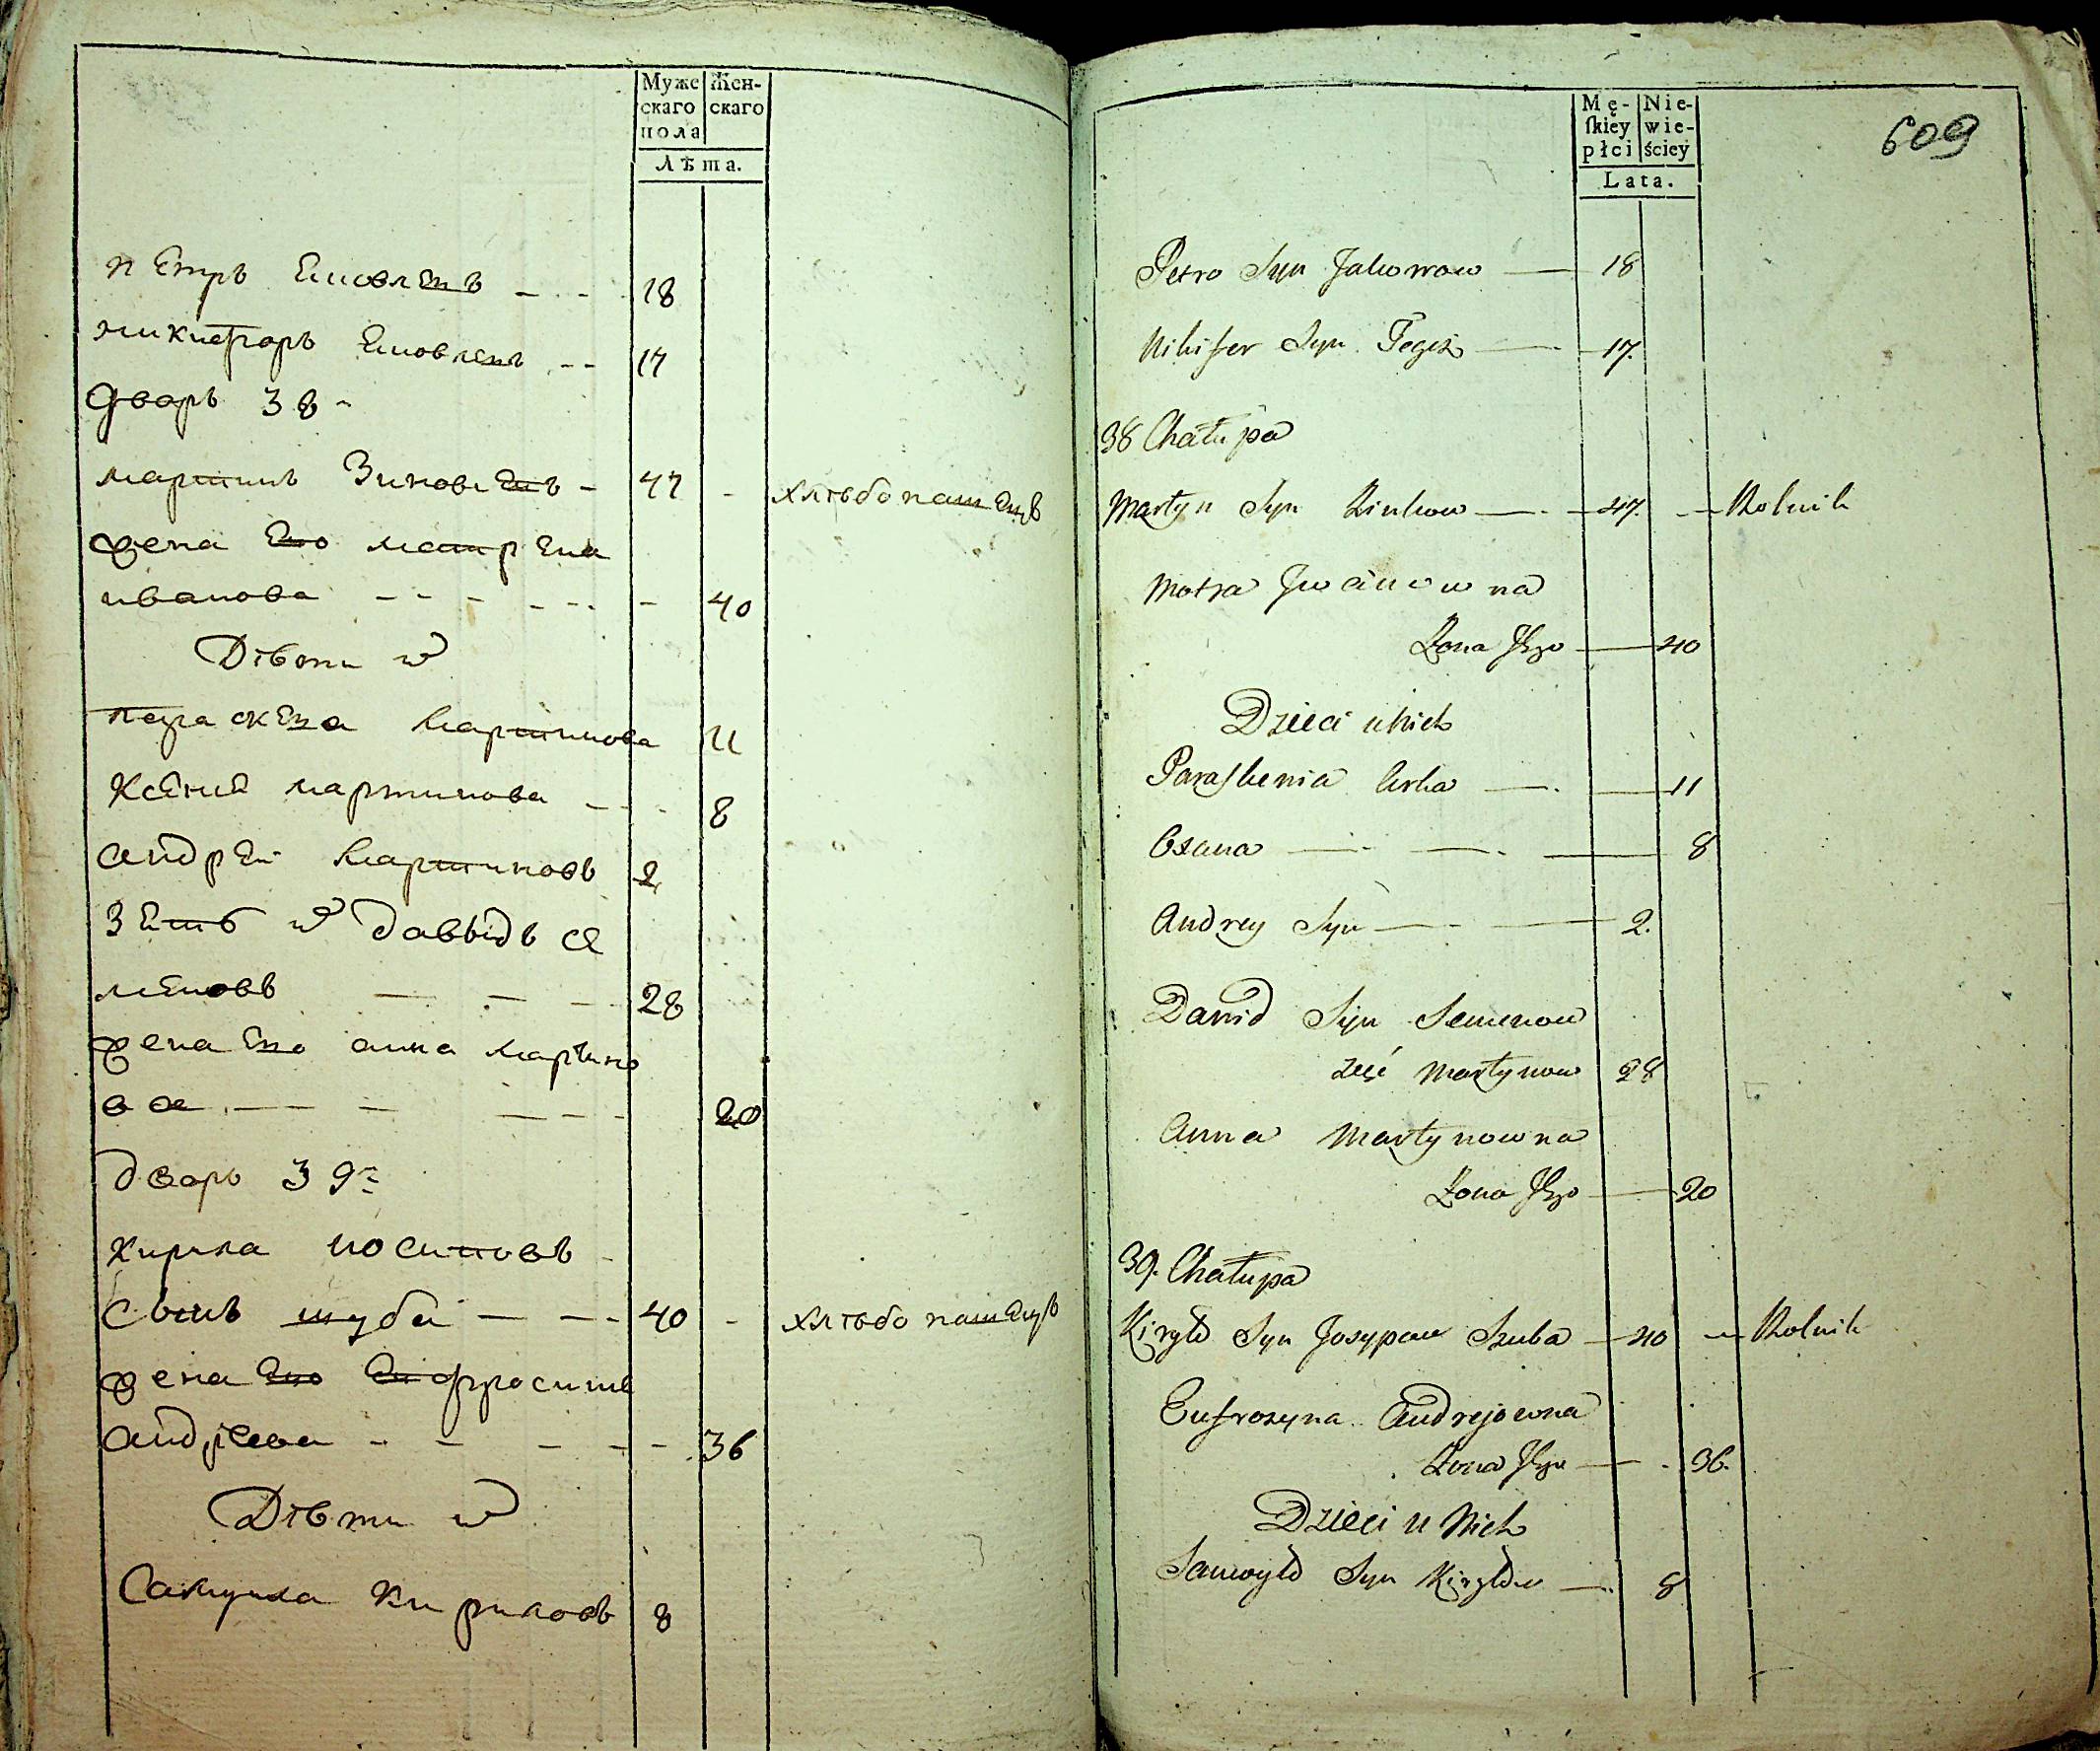 Муже
скаго
пола
Жен-
скаго
Лѣта.
Петръ Яковлевъ 18
Никифоръ Яковлевъ 17
Дворъ 38
Мартинъ Зиновевъ 47 хлѣбопашецъ
жена его матрена
иванова 40
Дѣти ѿ
параскева Мартинова 11
Ксения мартинова 8
андрей Мартиновъ 2
зять ѿ давыдъ се
меновъ 28
жена его анна мартино
ва 20
дворъ 39
кирила иосиповъ
сынъ шуба 40 хлѣбопашецъ
жена его ефросиния
андреева 36
Дѣти ѿ
Самуила Кириловъ 8
609
Mę-
ſkiey
płci
Nie-
wie-
ściey
Lata.
Petro Syn Jakowow 18
Nikifer Syn Tegoż 17.
38 Chałupa
Martyn Syn Zinkow 47. Rolnik
Motra Jwanowna
Żona Jego 40
Dzieci u Nich
Paraskewia Corka 11
Oxana 8
Andrey Syn 2.
Dawid Syn Semenow
zięć Martynow 28
Anna Martynowna
Żona Jego 20
39. Chałupa
Kiryło Syn Josypow Szuba 40 Rolnik
Eufrozyna Andrejowna
Żona Jego 36.
Dzieci u Nich
Samoyło Syn Kiryłow 8